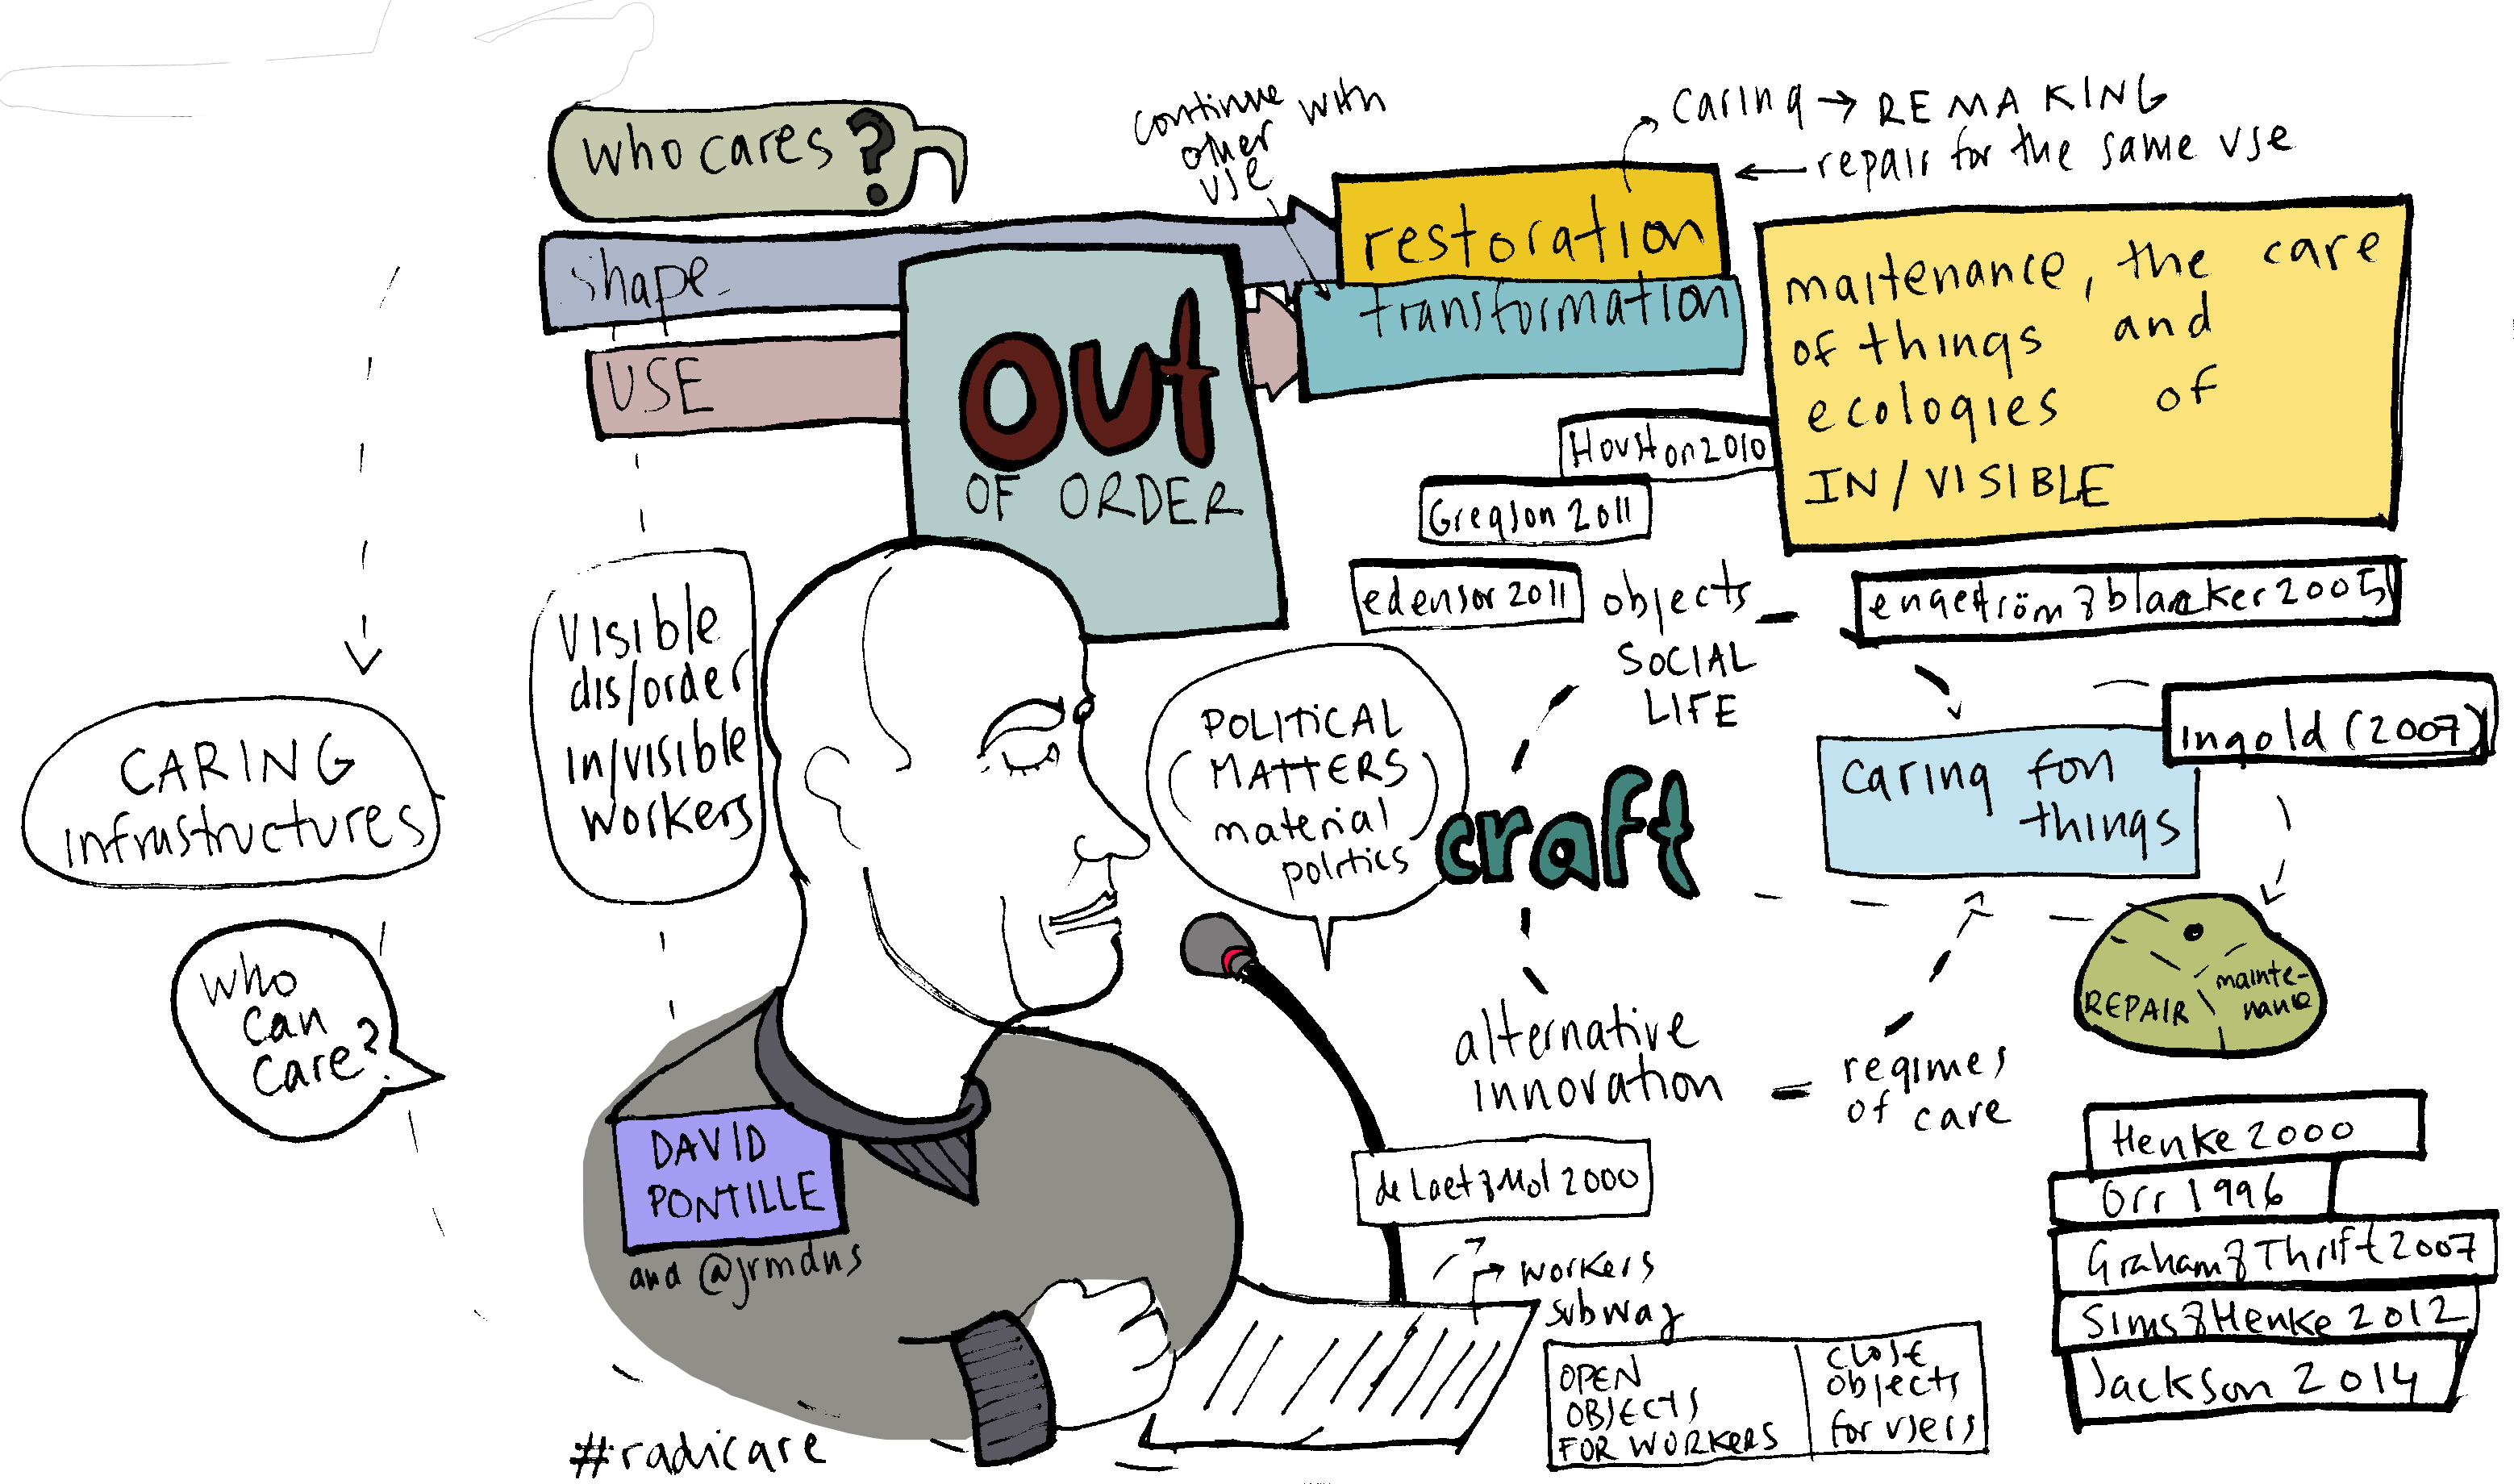 who cares?
continue with
other
use
caring → REMAKING
repair for the same use
shape
USE
restoration
transformation
OUT
OF ORDER
maitenance, the care
of things and
ecologies of
IN/VISIBLE
Houston 2010
Gregson 2011
edensor 2011
objects
SOCIAL
LIFE
engeström & blacker 2005
Ingold (2007)
caring fon
things
visible
dis/order
in/visible
workers
CARING
infrastructures
who
can
care?
POLITICAL
MATTERS
material
politics
craft
REPAIR
mainte-
nance
alternative
innovation
regimes
of care
DAVID
PONTILLE
and @jrmdns
de Laet & Mol 2000
workers
subway
OPEN
OBJECTS
FOR WORKERS
CLOSE
objects
for users
Henke 2000
Orr 1996
Graham & Thrift 2007
Sims & Henke 2012
Jackson 2014
#radicare